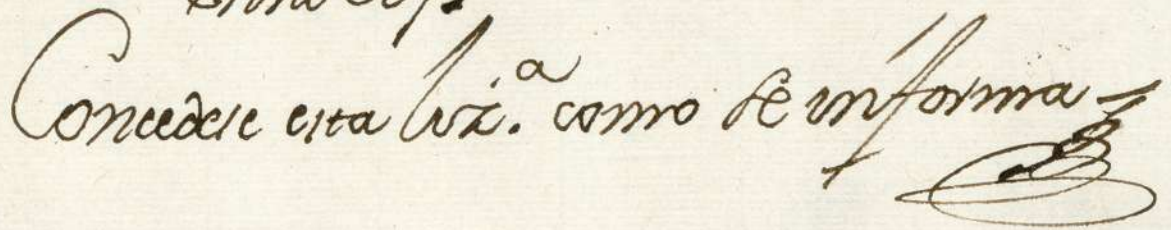 Concedese esta liz.ª como se informa